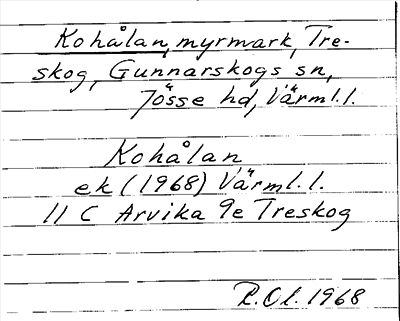 Kohålan, myrmark, Tre-
skog, Gunnarskogs sn,
Jösse hd, Värml.l.
Kohålan
ek (1968) Värml.l.
11 C Arvika 9e Treskog
R.Ol. 1968